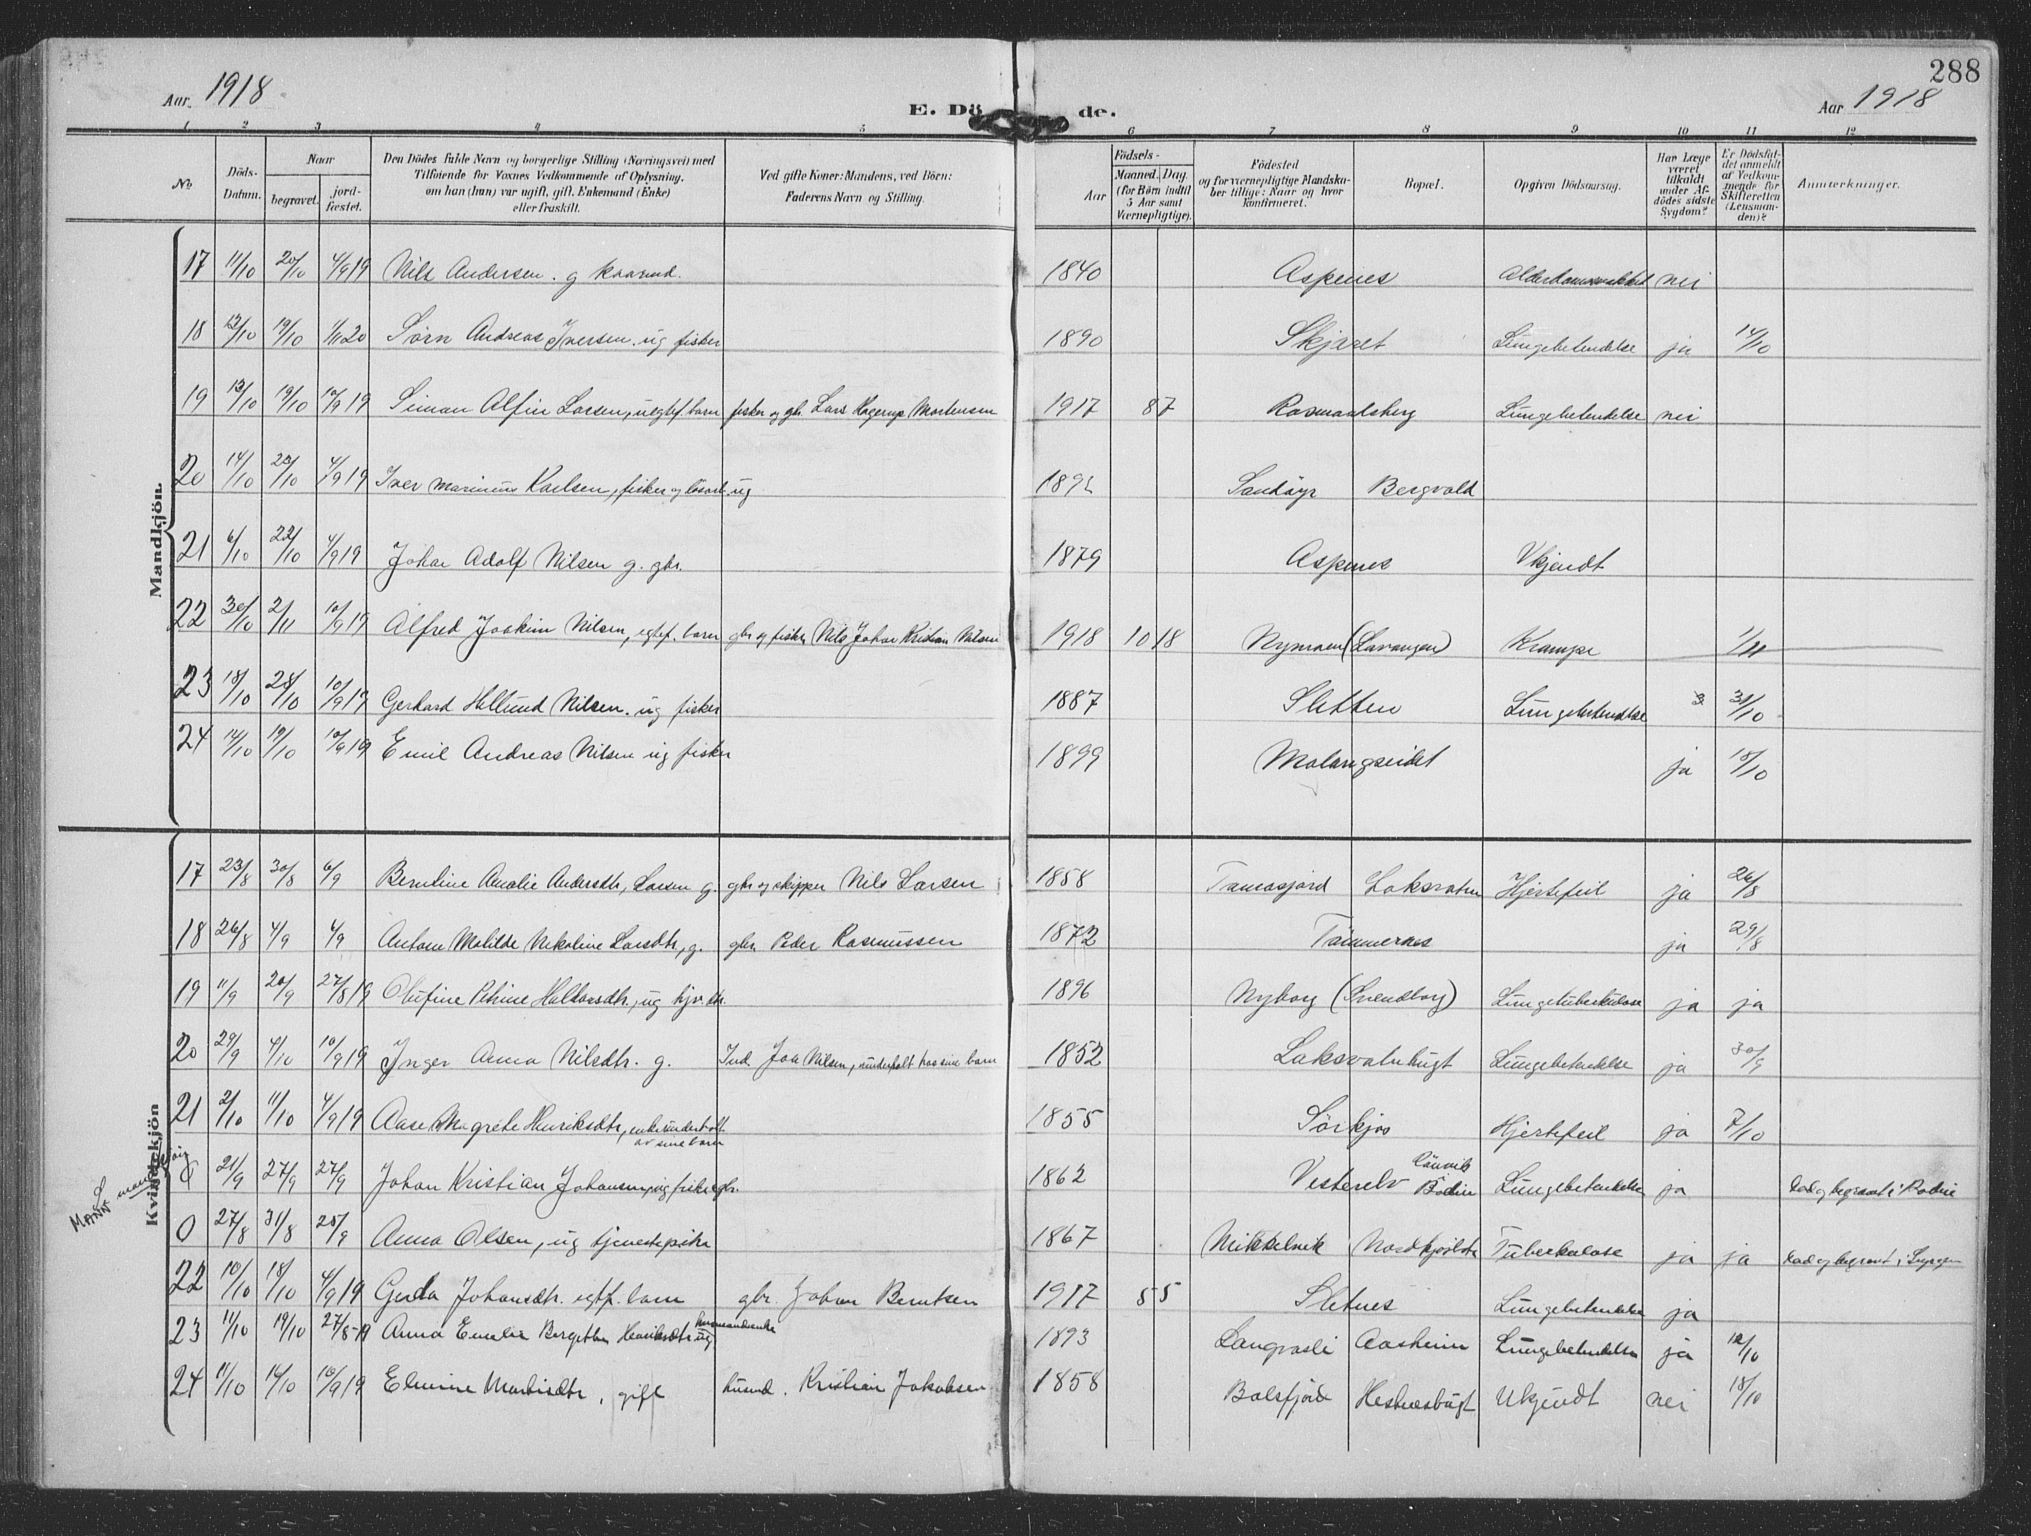 288
Aar 1918
E. Dö de.
Aar 1918
1 2 3 4 5 6 7 8 9 10 11 12
No
Döds-Datum.
Naar
begravet.
jord-fæstet.
Den Dödes fulde Navn og borgerlige Stilling (Næringsvei) med
Tilföiende for Voxnes Vedkommende af Oplysning,
om han (hun) var ugift, gift, Enkemand (Enke)
eller fraskilt.
Ved gifte Koner: Mandens, ved Börn:
Faderens Navn og Stilling.
Födsels-
Aar
Maaned. Dag.
(for Börn indtil
5 Aar samt
Værnepligtige).
Födested
og for værnepligtige Mandska-
ber tillige: Naar og hvor
konfirmeret.
Bopæl.
Opgiven Dödsaarsag.
Har Læge
været
tilkaldt
under Af-
dödes sidste
Sygdom?
Er Dödsfal-
det anmeldt
af Vedkom-
mende for
Skifteretten
(Lensman-
den)?
Anmærkninger.
Mandkjön.
17 11/10 20/10 4/9 19 Nils Andersen. g kaarmd. 1840 Aspenes nei
18 12/10 19/10 1/1 20 Sörn Andreas Iversen. ug fisker 1890 Skjæret Lungebetendelse ja 14/10
19 13/10 19/10 10/9 19 Simon Alfin Larsen, uegtef. barn fisker og gbr. Lars Hagerup Mortensen 1917 8 7 Lungebetendelse nei
20 14/10 4/9 19 Iver Marinius Karlsen, fisker og ug Sandöyr Bergvold
21 6/10 22/10 4/9 19 Johan Adolf Nilsen g. gbr. 1879 Aspenes Ukjendt
22 30/10 2/11 10/9 19 Alfred Joakim Nilsen, egtef. barn gbr og fisker Nils Johan Kristian Nilsen 1918 10 18 Nymoen (Lavangen) Krampe 1/11
23 18/10 28/10 10/9 19 Gerhard Hellund Nilsen. ug fisker 1887 Sletten Lungebetendelse 31/10
24 14/10 19/10 10/9 19 Emil Andreas Nilsen ug fisker 1899 Malangseidet ja 15/10
Kvindekjön
17 23/8 30/8 6/9 Berntine Amalie Andersdtr, Larsen g. gbr og skipper Nils Larsen 1858 Laksvatn Hjertefeil ja 26/8
18 26/8 4/9 4/9 Antone Matilde Nikoline Larsdtr, g. gbr. Peder Rasmussen 1872 Tömmernes ja 29/8
19 11/9 20/9 27/8 19 Olufine Petrine Haldorsdtr, ug hjv. dtr. 1896 Nyborg (Svendborg) Lungetuberkulose ja ja
20 29/9 4/10 10/9 19 Inger Anna Nilsdtr. g. Ind. Joa Nilsen, underholt hos sine barn 1852 Laksvatnbugt Lungebetendelse ja 30/9
21 2/10 11/10 4/9 19 Aase Magrete Henriksdtr, enke underholt
av sine barn 1855 Sörkjos Hjertefeil ja 7/10
MANN
0 21/9 27/9 27/9 Johan Kristian Johansen, ug fisker gbr. 1862 Vesterelv Bodin Lungebetendelse ja död og begravet i Bodin
0 27/8 31/8 25/9 Anna Olsen, ug tjenestepike 1867 Mikkelvik Tuberkulose ja ja död og begravet i
22 10/10 18/10 4/9 19 Gerda Johansdtr. egtf. barn gbr. Johan Berntsen 1917 5 5 Sletnes Lungebetendelse ja
23 11/10 19/10 27/8 19 Anna Emelie Bergitte Henriksdtr ug 1893 Langvasli Aasheim Lungebetendelse ja 12/10
24 11/10 14/10 10/9 19 gift husmd. Kristian Jakobsen 1858 Balsfjord Hestnesbugt Ukjendt nei 18/10